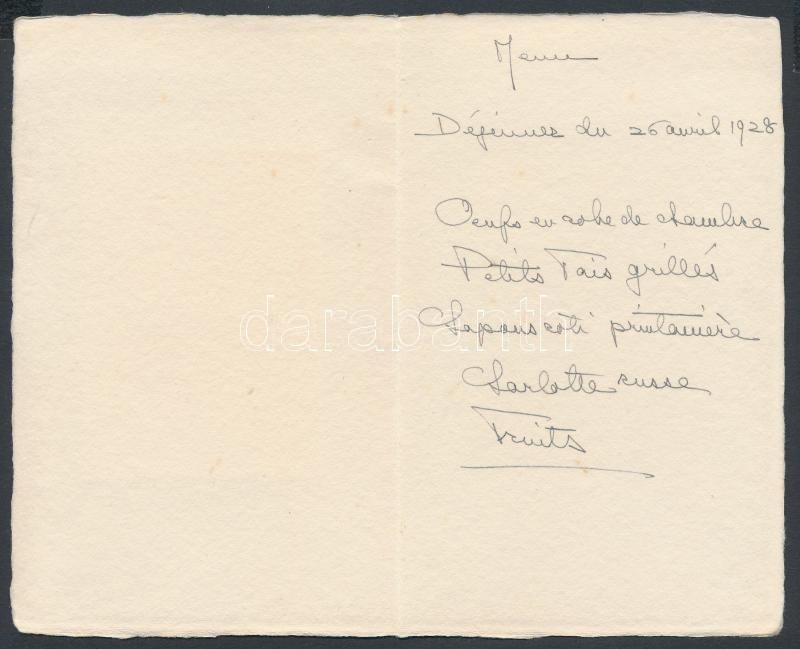 Menu
Déjeuner du 26 avril 1928
Oeufs en robe de chambre
Petits Fois grillés
Chapons rôti printanière
Charlotte russe
Fruits
darabanth